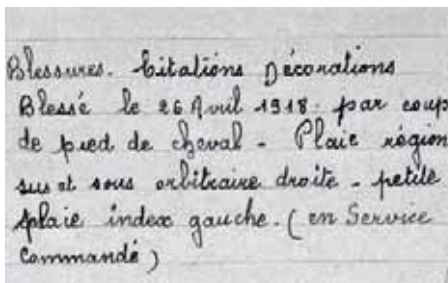 Blessures. Citations Décorations
Blessé le 26 Avril 1918. par coup
de pied de cheval - Plaie région
sus et sous orbitraire droite - petite
plaie index gauche. (en Service
Commandé)